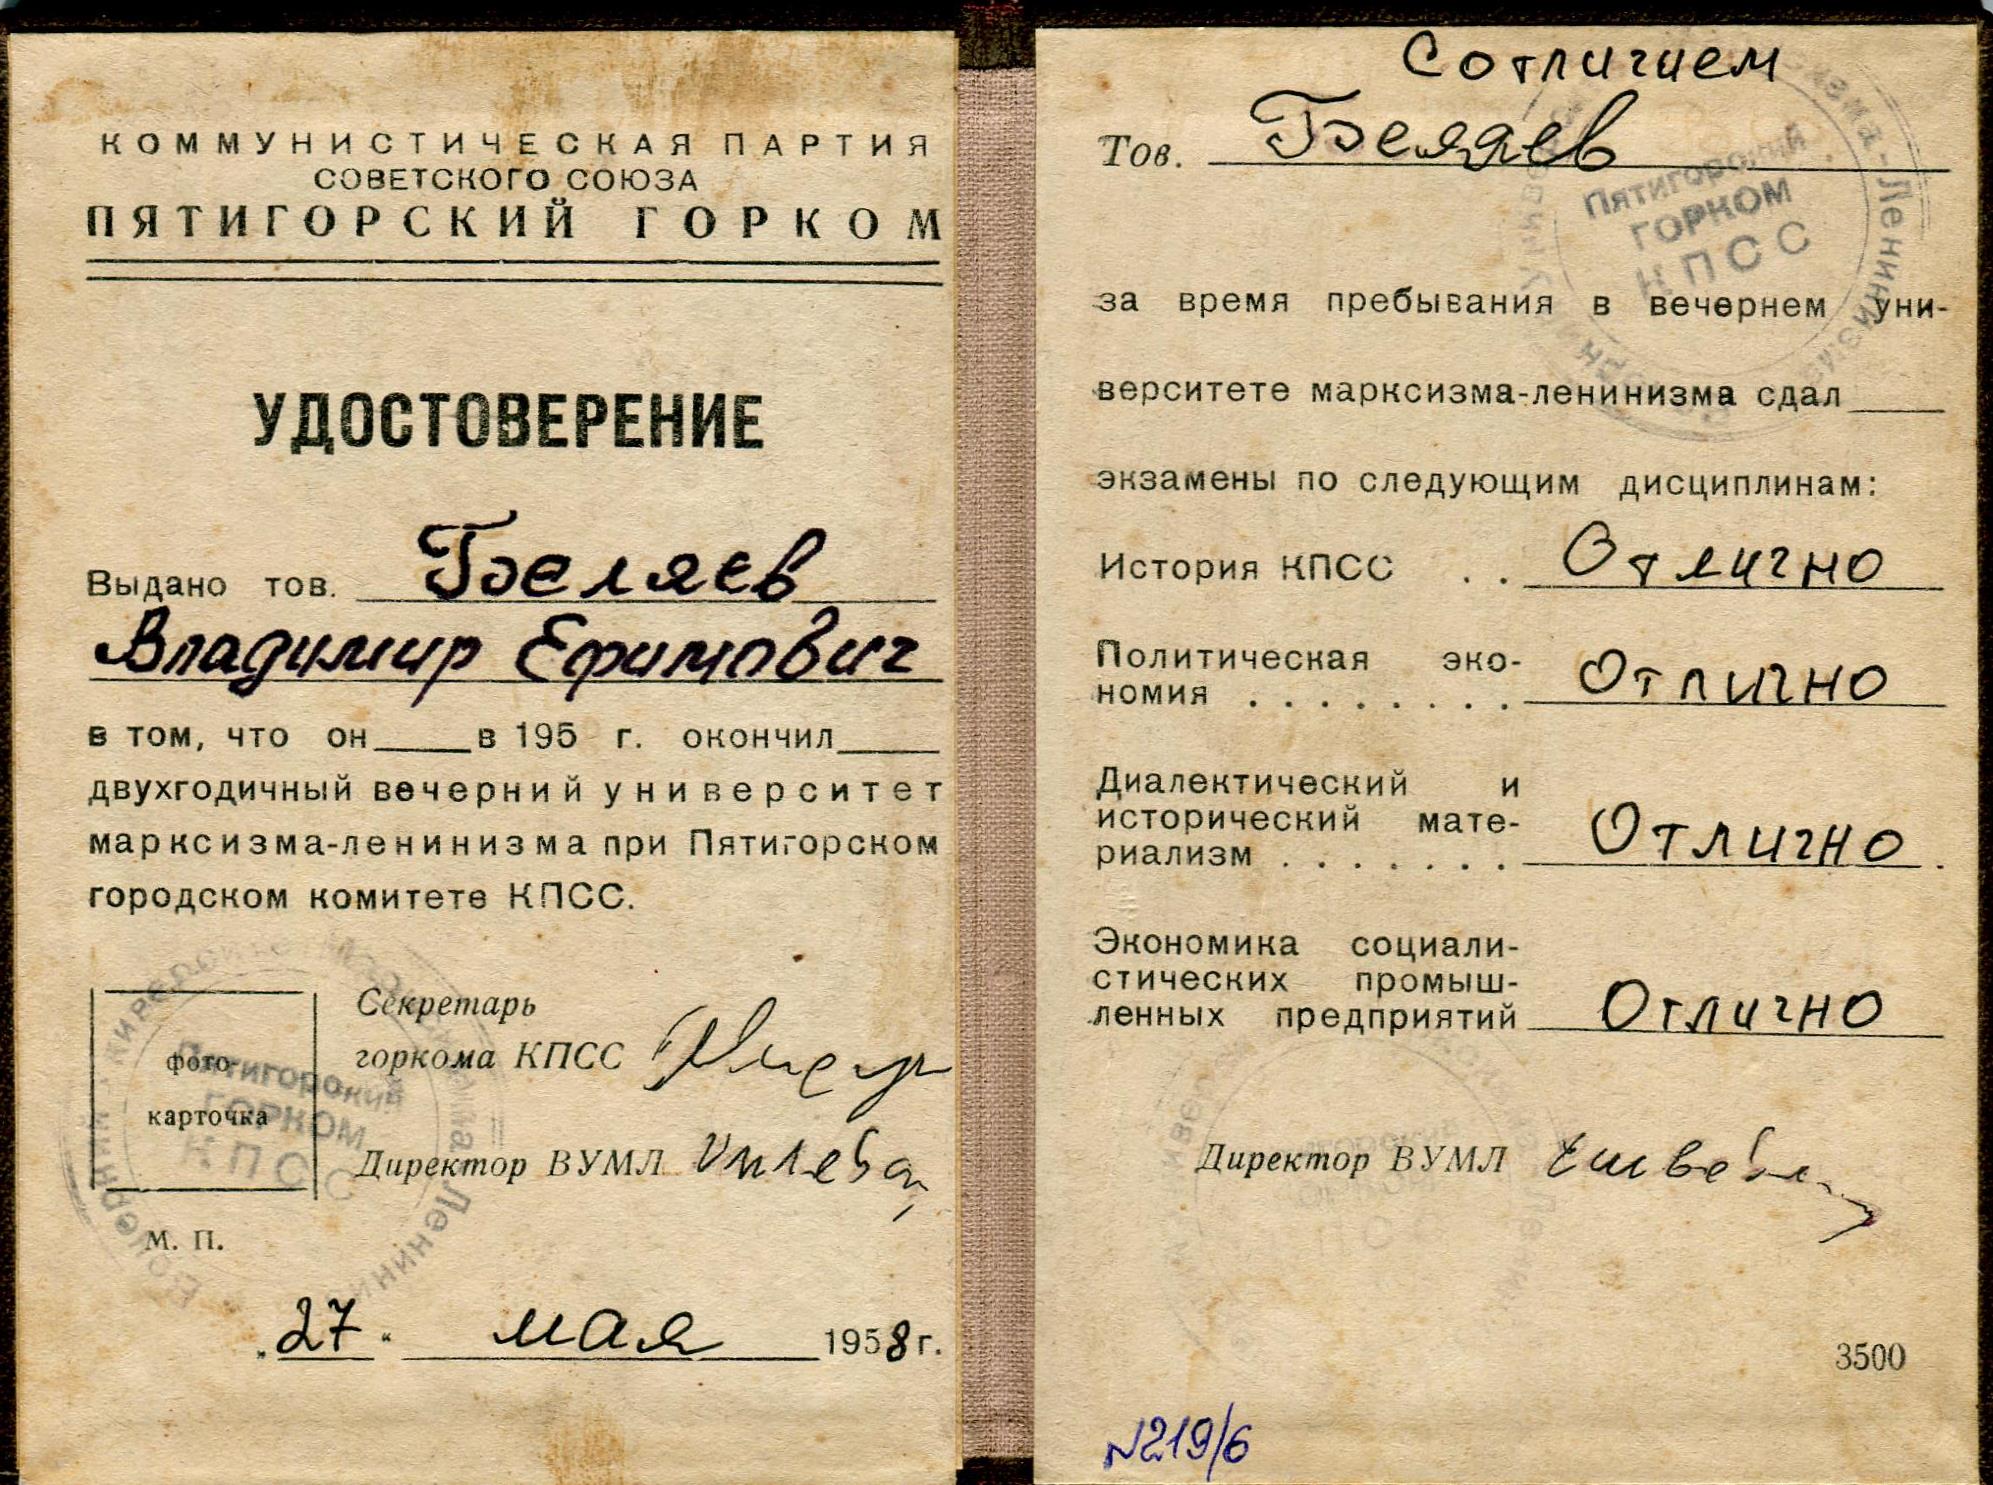 КОММУНИСТИЧЕСКАЯ ПАРТИЯ
СОВЕТСКОГО СОЮЗА
ПЯТИГОРСКИЙ ГОРКОМ
УДОСТОВЕРЕНИЕ
Выдано тов. Беляев
Владимир Ефимович
в том, что он____в 195 г. окончил____
двухгодичный вечерний университет
марксизма-ленинизма при Пятигорском
городском комитете КПСС.
фото-
карточка
Секретарь
горкома КПСС
Директор ВУМЛ
М. П.
Пятигорский
ГОРКОМ
КПСС
„27“ мая 1958 г.
С отличием
Тов. Беляев
Пятигорский
ГОРКОМ
КПСС
за время пребывания в вечернем уни-
верситете марксизма-ленинизма сдал____
экзамены по следующим дисциплинам:
История КПСС . . Отлично
Политическая эко-
номия . . . . . . . . Отлично
Диалектический и
исторический мате-
риализм . . . . . . . Отлично.
Экономика социали-
стических промыш-
ленных предприятий Отлично
Директор ВУМЛ
3500
N219/6